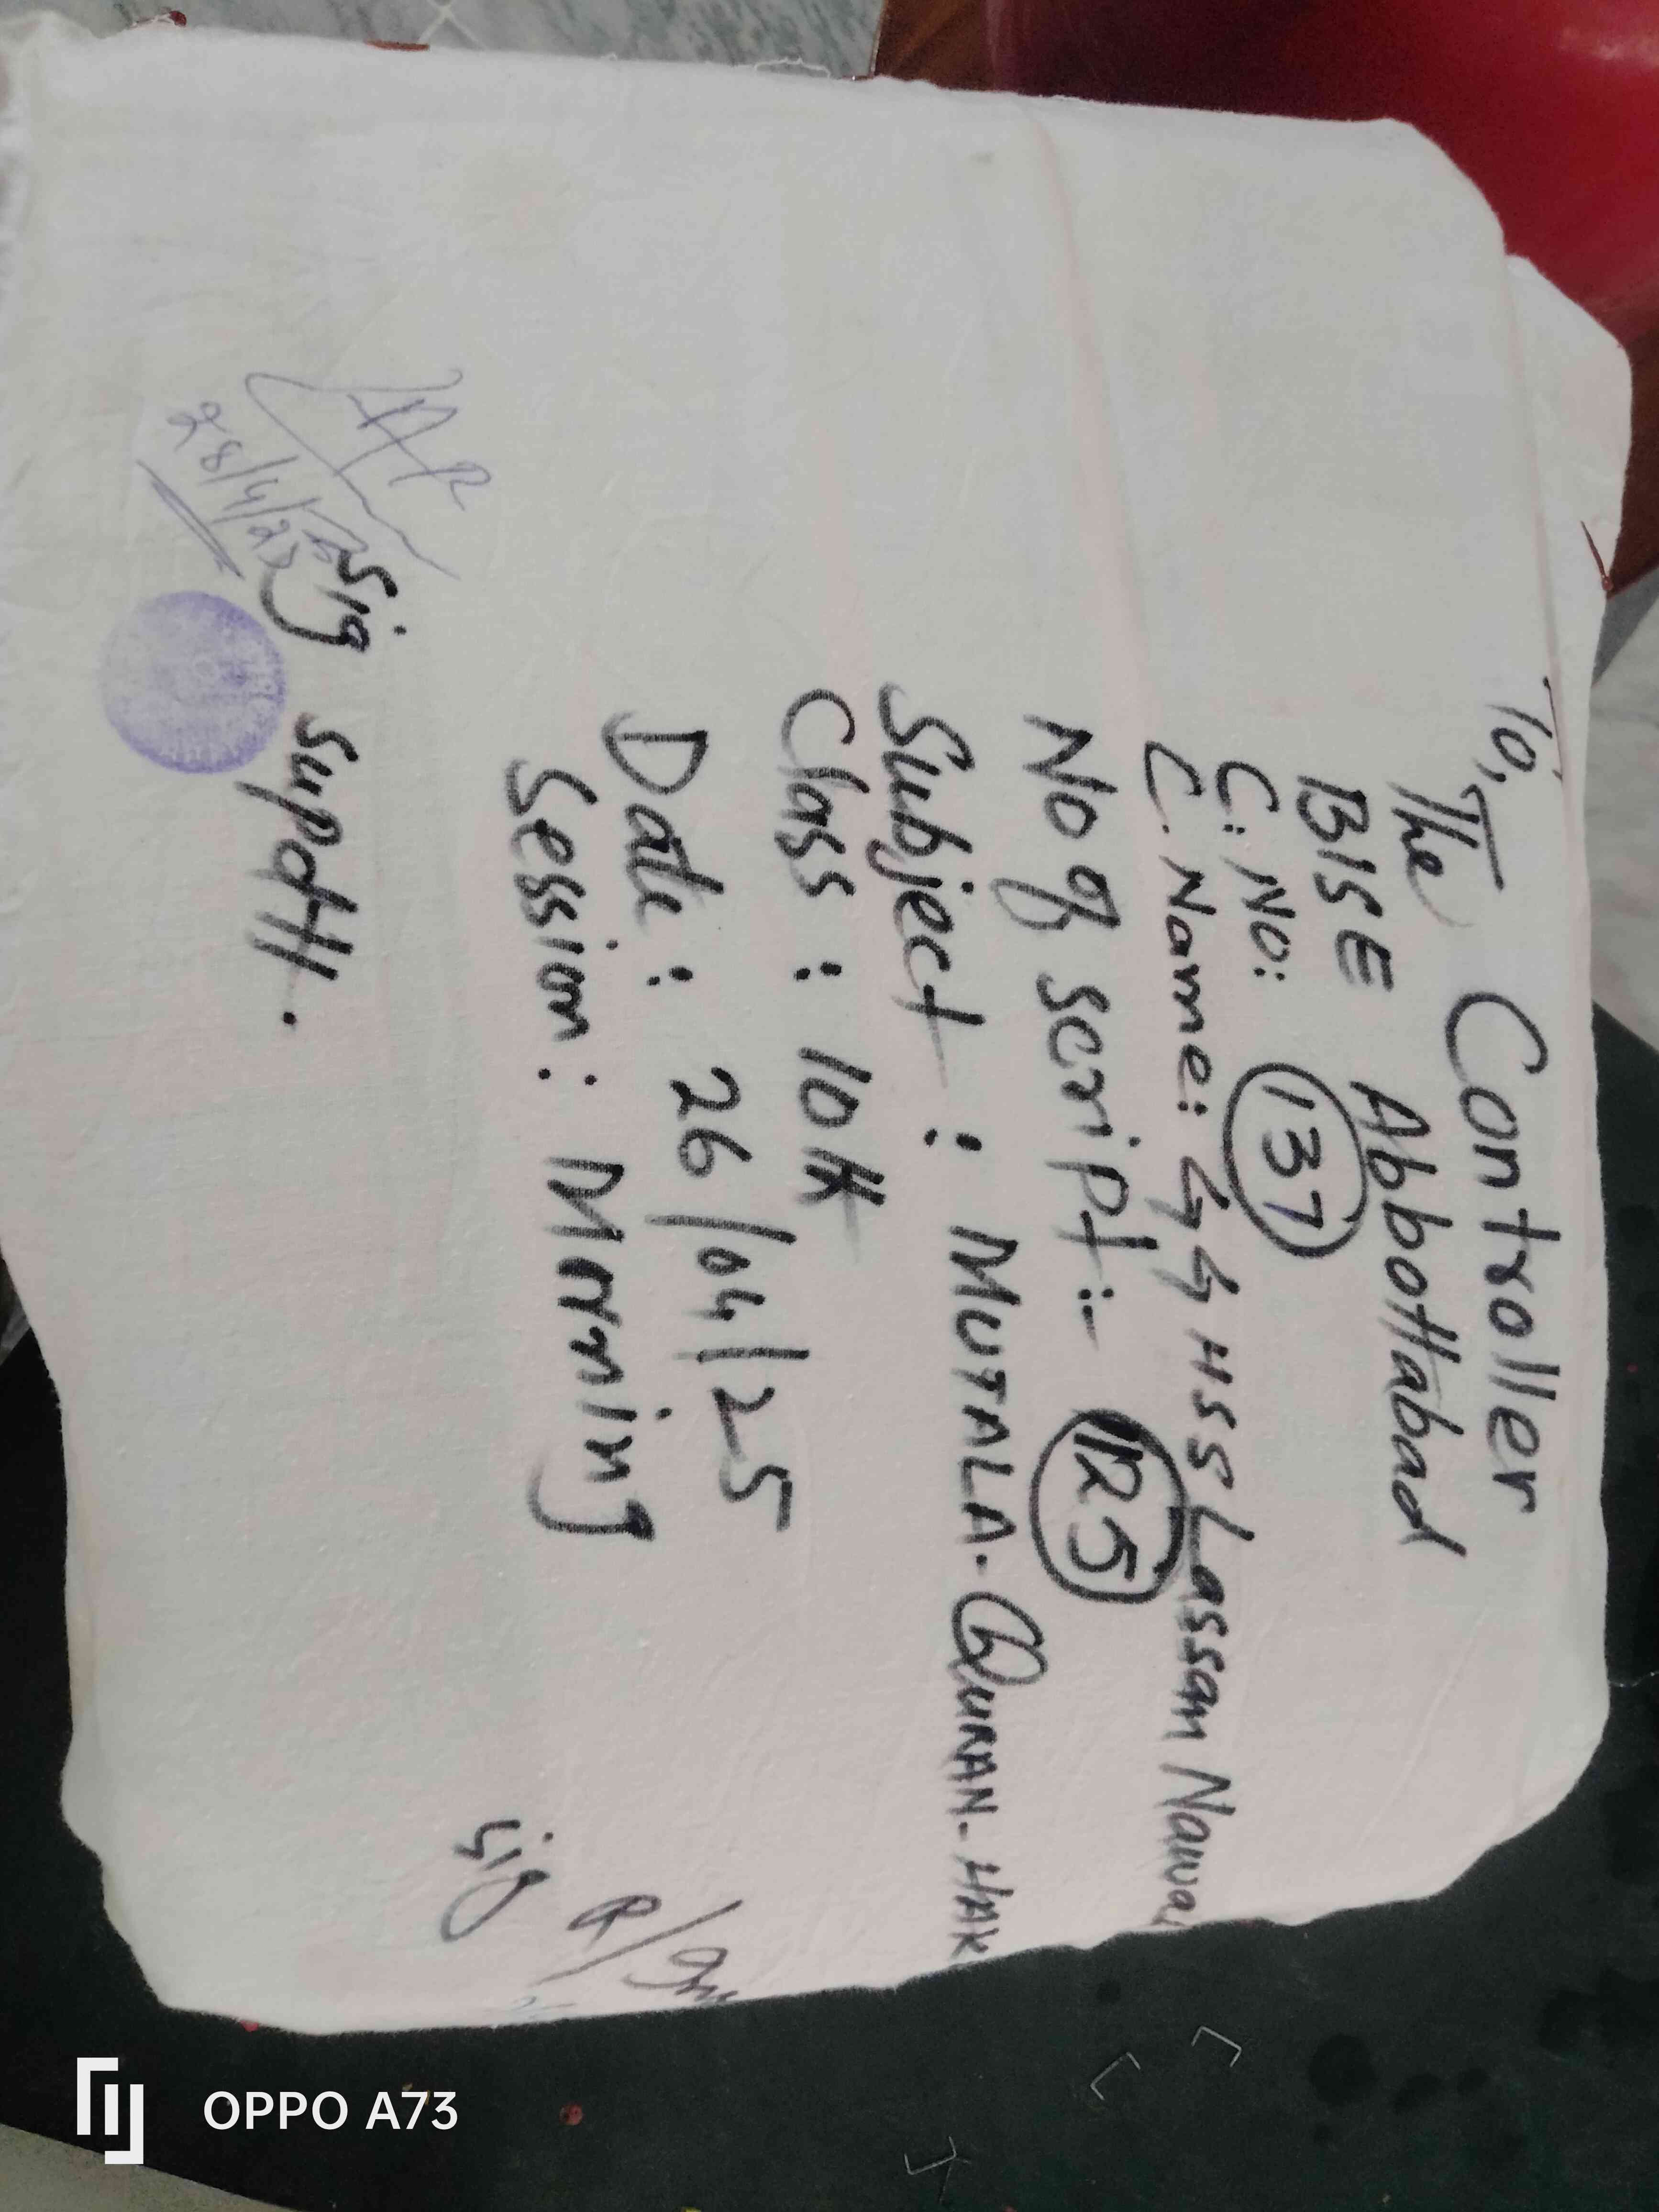 To,
The Controller
BISE Abbottabad
C: No: 137
C. Name: GGHSS Lassan Nawa
No of script:- 125
Subject : MUTALA-QURAN-HAK
Class : 10th
Date : 26/04/25
Session : Morning
Sig
Sig supdtt.
28/4/25
OPPO A73